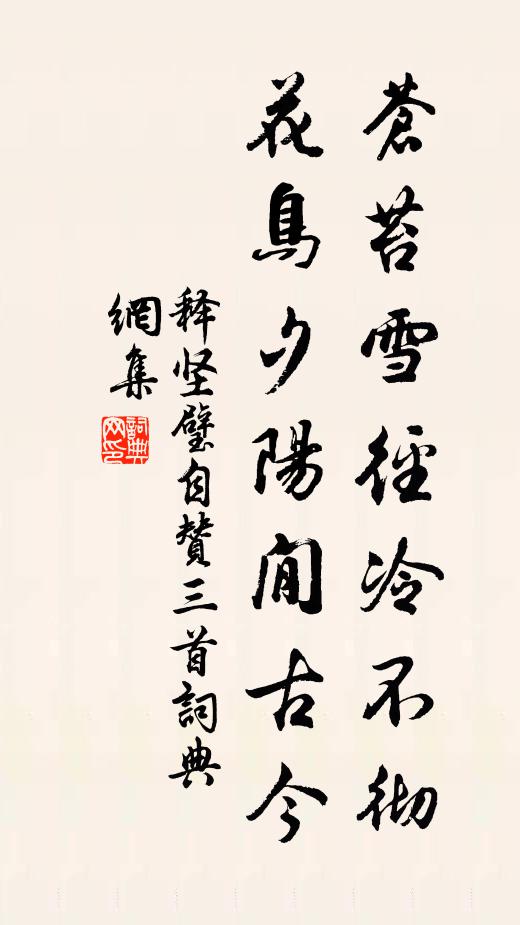 蒼苔雪徑冷不彻
花鳥夕陽閒古今
释坚璧自赞三首詞典
網集
詞典
网印